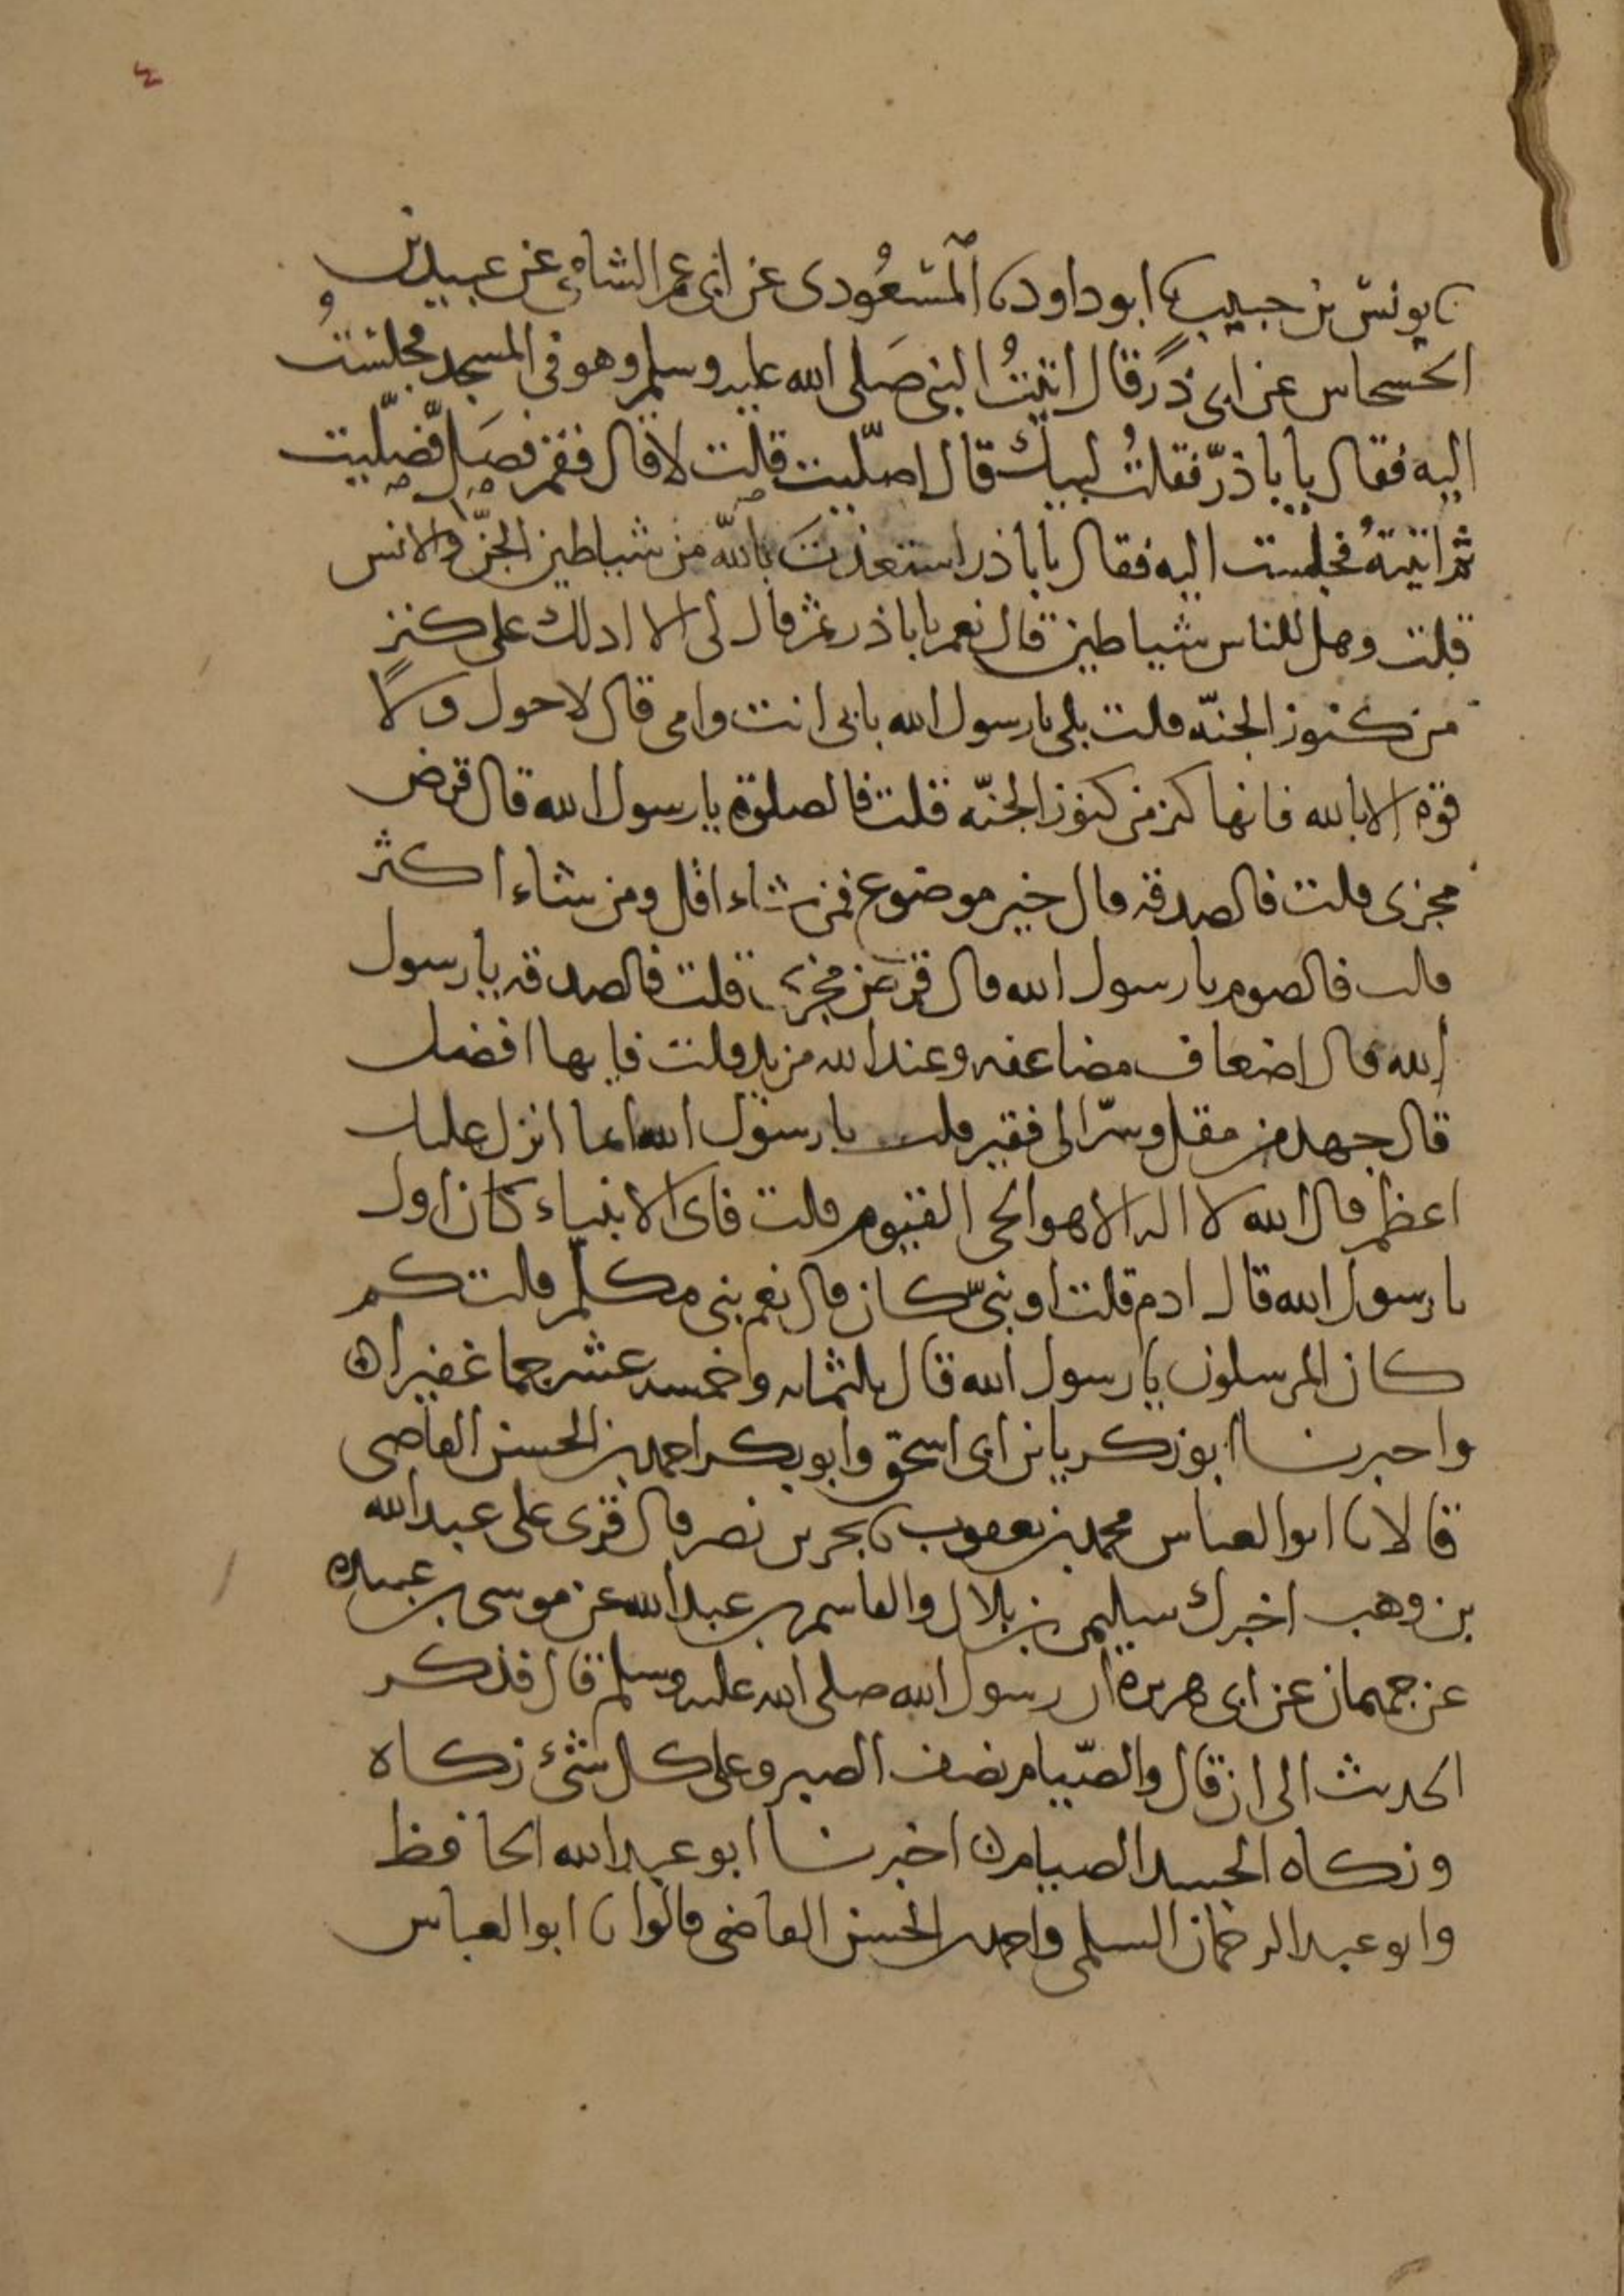 ٤
نا يونس بن حبيب نا ابو داود نا المسعودى عن ابى عمر الشامى عن عبيد بن
الخسحاس عن ابى ذر قال اتيت النبى صلى الله عليه وسلم وهو فى المسجد فجلست
اليه فقال يا با ذر فقلت لبيك قال اصليت قلت لا قال فقم فصل فصليت
ثم اتيته فجلست اليه فقال يا با ذر استعذت بالله من شياطين الجن والانس
قلت وهل للناس شياطين قال نعم يا با ذر ثم قال لى الا ادلك على كنز
من كنوز الجنه قلت بلى يا رسول الله بابى انت وامى قال لا حول ولا
قوة الا بالله فانها كنز من كنوز الجنه قلت فالصلوة يا رسول الله قال فرض
مجزى قلت فالصدقه قال خير موضوع فمن شاء اقل ومن شاء اكثر
قلت فالصوم يا رسول الله قال فرض مجزى قلت فالصدقه يا رسول
الله قال اضعاف مضاعفه وعند الله مزيد قلت فايها افضل
قال جهد من مقل وسرا الى فقير قلت يا رسول الله ايما انزل عليك
اعظم قال الله لا اله الا هو الحى القيوم قلت فاى الانبياء كان اول
يا رسول الله قال ادم قلت او نبى كان قال نعم نبى مكلم قلت كم
كان المرسلون يا رسول الله قال ثلثمائه وخمسه عشر جما غفيرا
واخبرنا ابو زكريا بن ابى اسحق وابو بكر احمد بن الحسن القاضى
قالا نا ابو العباس محمد بن يعقوب نا بحر بن نصر قال قرى على عبد الله
بن وهب اخبرك سليمن بن بلال والقاسم بن عبد الله عن موسى بن عبيده
عن جمهان عن ابى هريره ان رسول الله صلى الله عليه وسلم قال فذكر
الحديث الى ان قال والصيام نصف الصبر وعلى كل شئ زكاه
وزكاه الجسد الصيام اخبرنا ابو عبد الله الحافظ
وابو عبد الرحمان السلمى واحمد بن الحسن القاضى قالوا نا ابو العباس